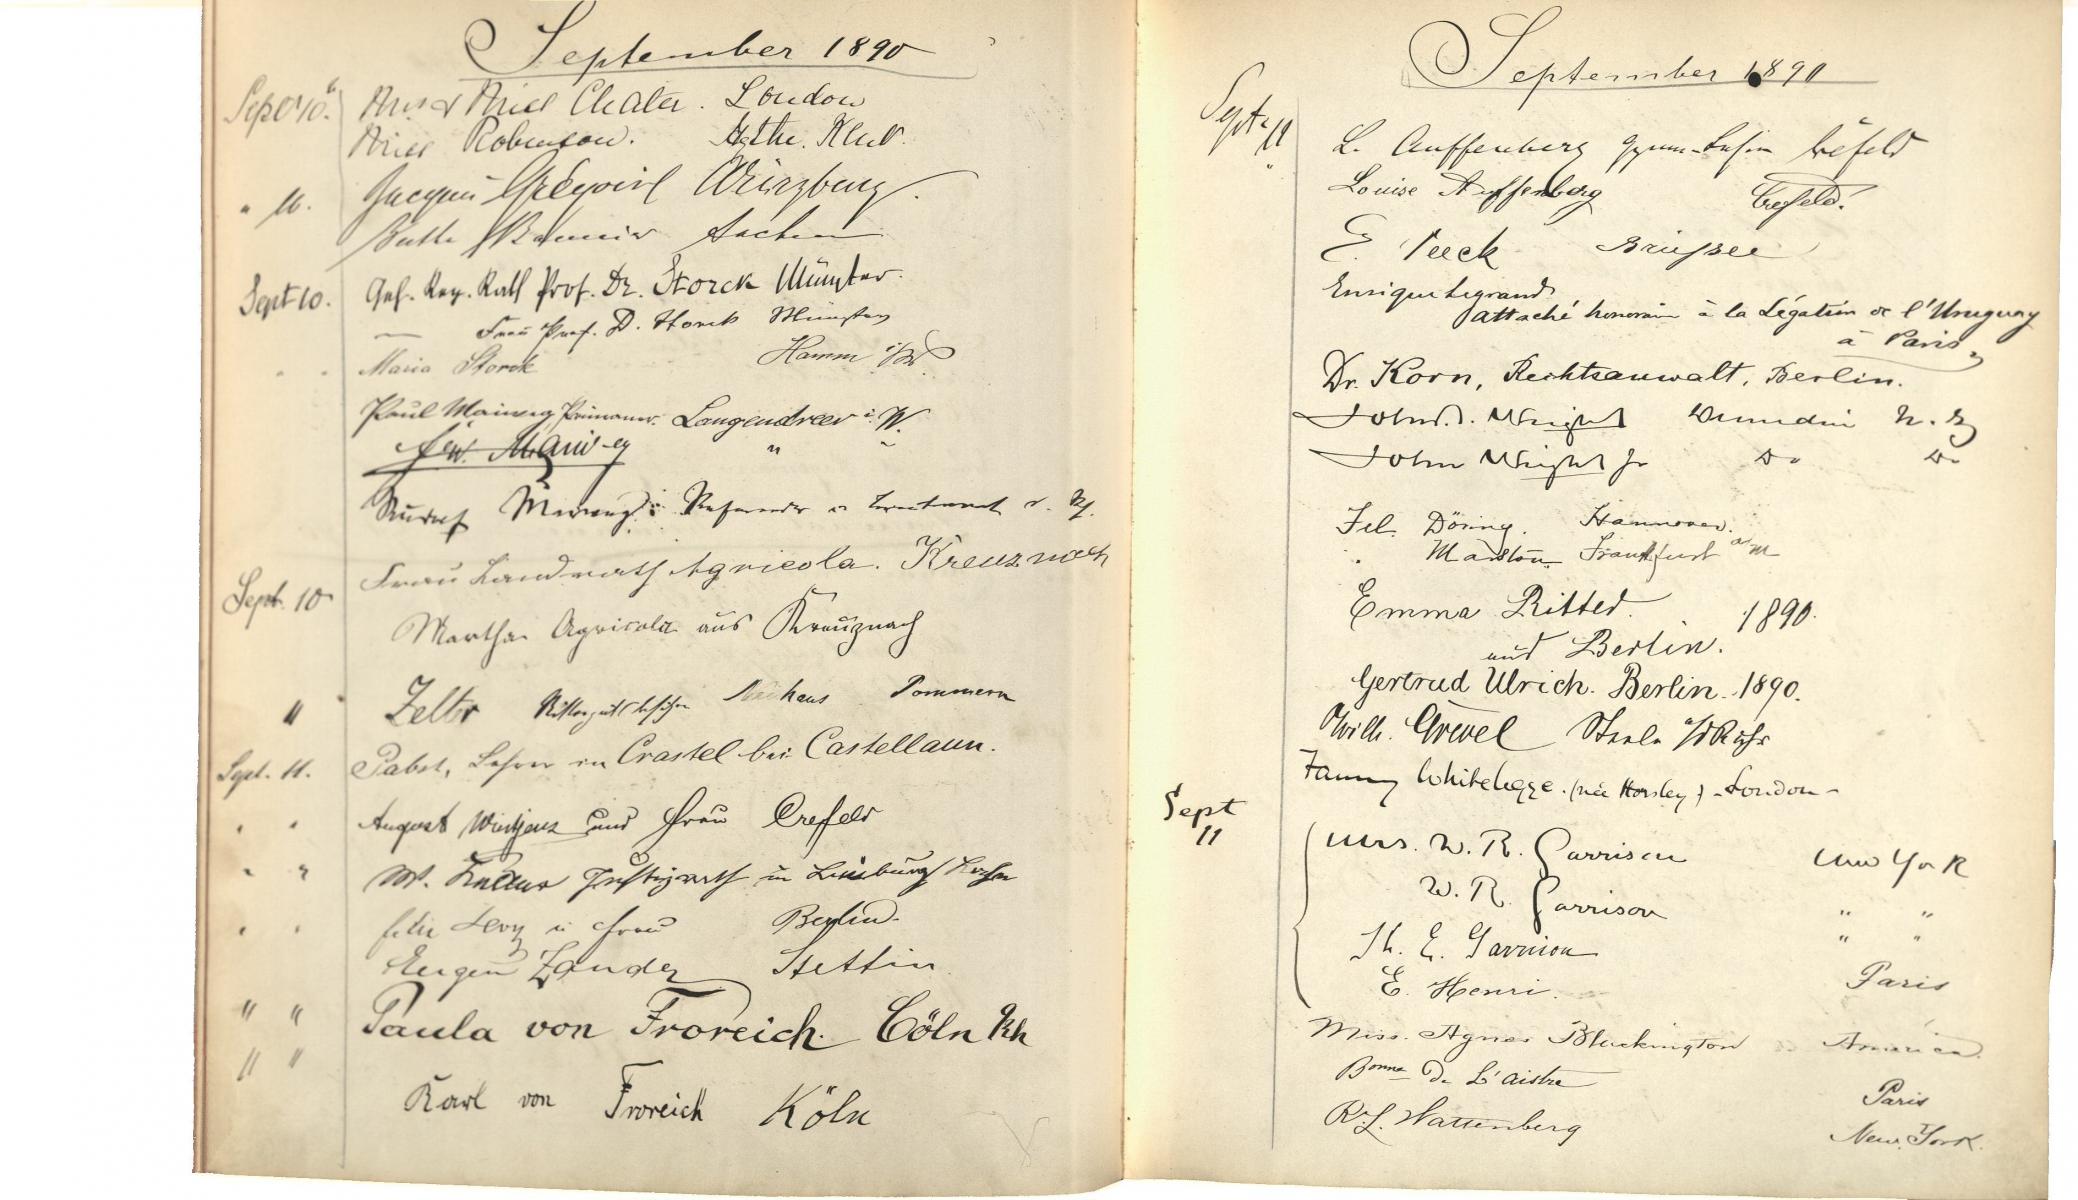 September 1890
Sept 10. Mr & Miss Chater. London
Miss Robinson.
" 10. Jacques Grégoire Würzburg.
Aachen
Sept 10. Geh. Reg. Rath Prof. Dr. Storck Münster.
— Frau Prof. D. Storck Münster
" " Maria Storck Hamm i/W
Paul Mainweg Primaner. Langendreer i. W.
"
Frau Landrath Agricola. Kreuznach
Sept. 10 Martha Agricola aus Kreuznach
" Zelter Rittergutsbesitzer Neuhaus Pommern
Sept. 11. Pabst, Lehrer in Crastel bei Castellaun.
" " August Wintjens und Frau Crefeld
" " Justizrath in Limburg Lahn
" " Felix Levy u Frau Berlin.
Eugen Zander Stettin
" " Paula von Froreich. Cöln Rh
" " Karl von Froreich Köln
September 1890
Sept. 11 L. Auffenberg Crefeld
Louise Auffenberg Crefeld.
E. Peeck
Enrique Legrand
attaché honoraire à la Légation de l'Uruguay
à Paris
Dr. Korn, Rechtsanwalt, Berlin.
John S. Wright Dunedin N. Z
John Wright Jr Do Do
Fel. Döring. Hannover.
" Marston Frankfurt a/m
Emma Ritter. 1890.
und Berlin.
Gertrud Ulrich. Berlin. 1890.
Wilh. Grevel Steele a/d Ruhr
Fanny Whitelegge. (née Horsley) - London -
Sept 11 Mrs. W. R. Garrison New York
W. R. Garrison " "
Th. E. Garrison " "
E. Henri. Paris
Miss. Agnes Blackington America.
Bonne de L'aistre Paris
R. L. Wattenberg New. York.